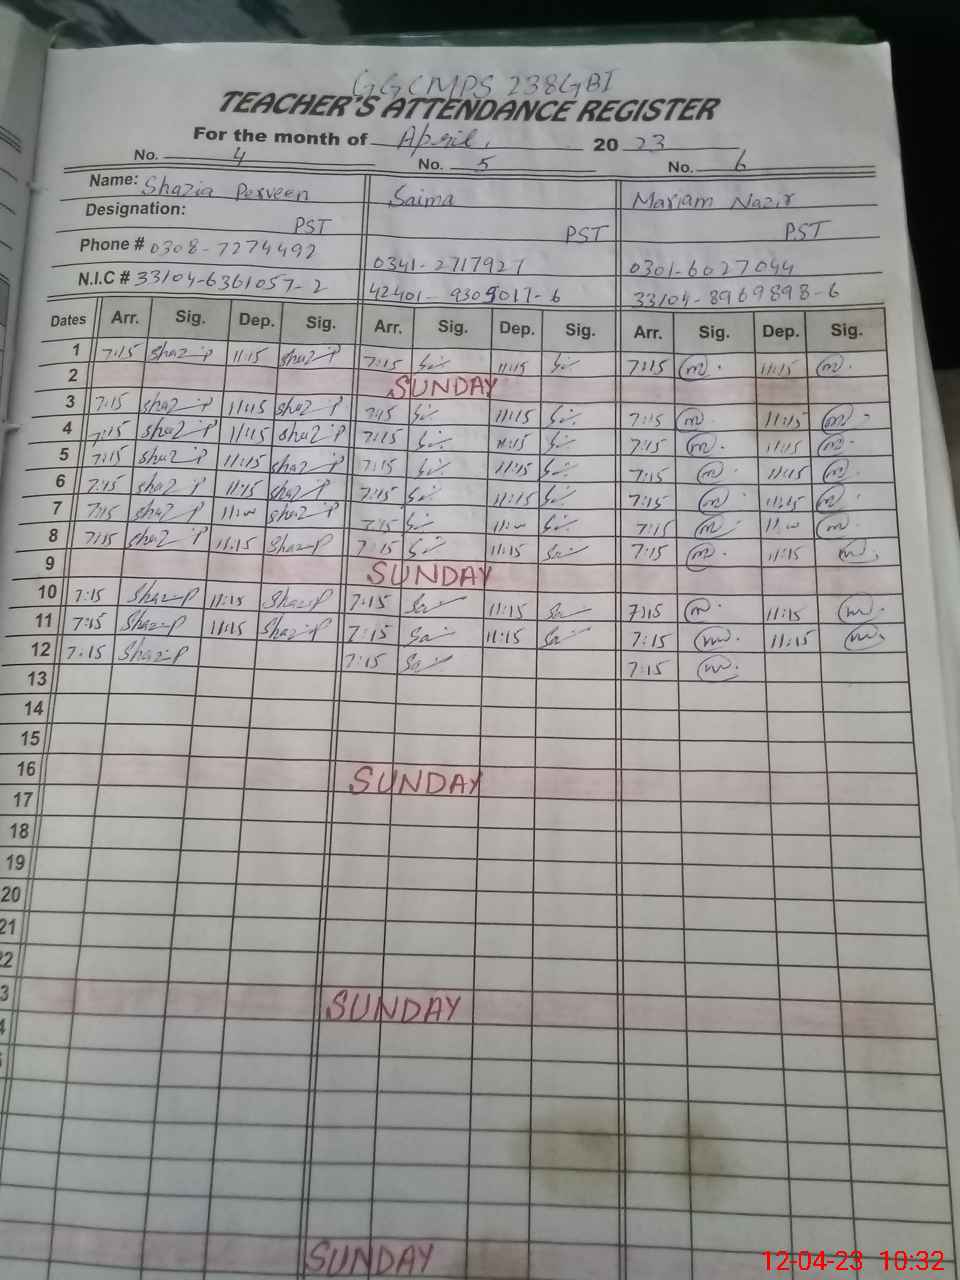 GGCMPS 238GBI
TEACHER'S ATTENDANCE REGISTER
For the month of April, 20 23
No. 4 No. 5 No. 6
Name: Shazia Perveen Saima Mariam Nazir
Designation: PST PST PST
Phone # 0308-7274492 0341-2717927 0301-6027044
N.I.C # 33104-6361057-2 42401-9305017-6 33104-8969898-6
Dates Arr. Sig. Dep. Sig. Arr. Sig. Dep. Sig. Arr. Sig. Dep. Sig.
1 7:15 ShaziP 11:15 ShaziP 7:15 11:15 7:15 m 11:15 m
2 SUNDAY
3 7:15 ShaziP 11:15 ShaziP 7:15 11:15 7:15 m 11:15 m
4 7:15 ShaziP 11:15 ShaziP 7:15 11:15 7:15 m 11:15 m
5 7:15 ShaziP 11:15 ShaziP 7:15 11:15 7:15 m 11:15 m
6 7:15 ShaziP 11:15 ShaziP 7:15 11:15 7:15 m 11:15 m
7 7:15 ShaziP 11:00 ShaziP 7:15 11:00 7:15 m 11:00 m
8 7:15 ShaziP 11:15 ShaziP 7:15 11:15 Sai 7:15 m 11:15 m
9 SUNDAY
10 7:15 ShaziP 11:15 ShaziP 7:15 Sai 11:15 Sai 7:15 m 11:15 m
11 7:15 ShaziP 11:15 ShaziP 7:15 Sai 11:15 Sai 7:15 m 11:15 m
12 7:15 ShaziP 7:15 Sai 7:15 m
13
14
15
16 SUNDAY
17
18
19
20
21
22
3 SUNDAY
4
SUNDAY
12-04-23 10:32